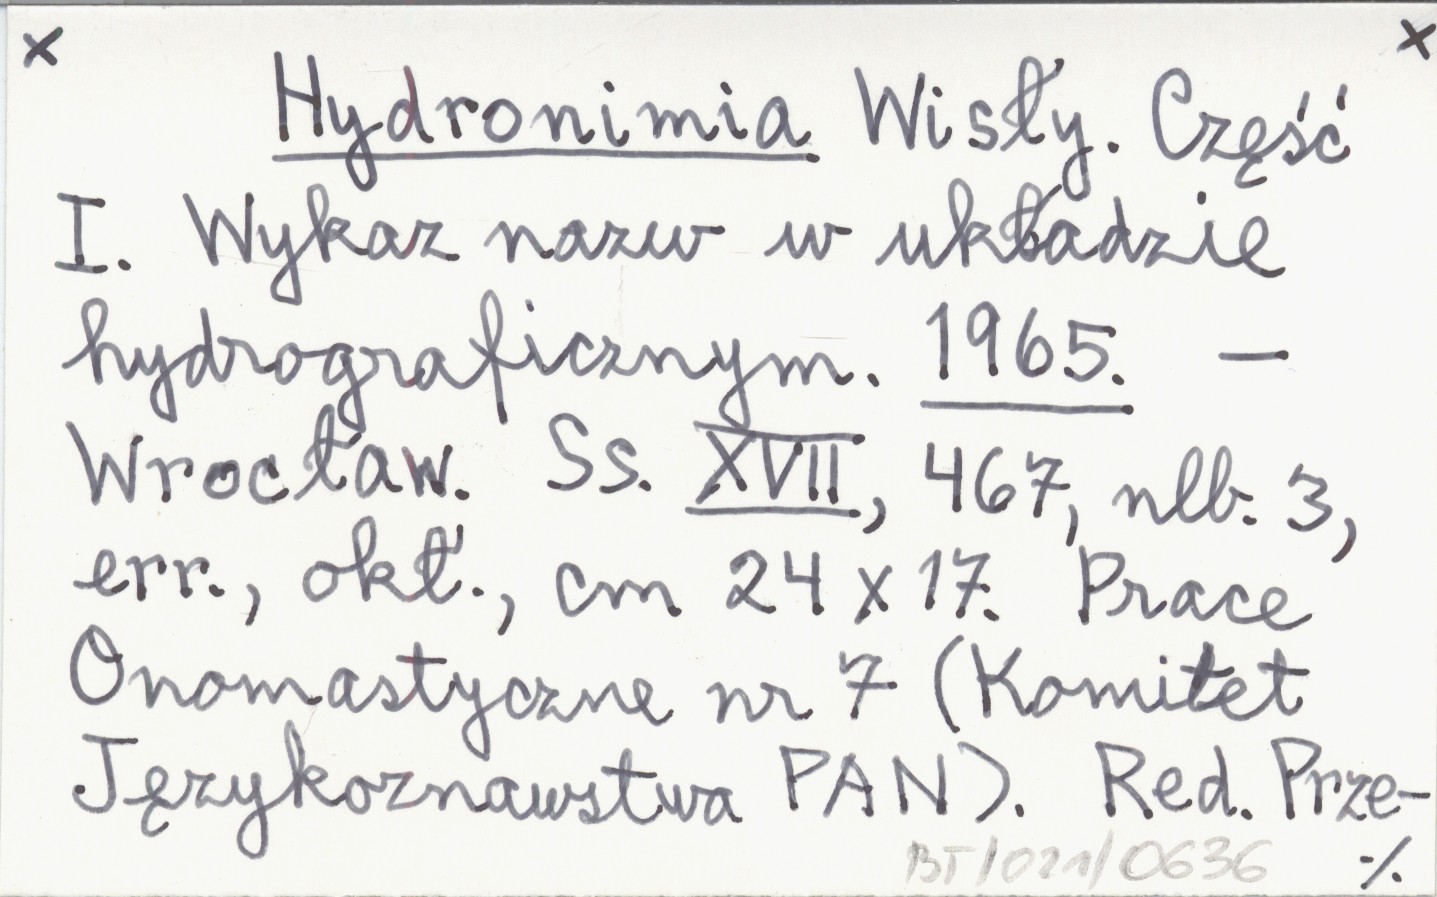 x x
Hydronimia Wisły. Część
I. Wykaz nazw w układzie
hydrograficznym. 1965. —
Wrocław. Ss. XVII, 467, nlb. 3,
err., okł., cm 24 x 17. Prace
Onomastyczne nr 7 (Komitet
Językoznawstwa PAN). Red. Prze-
BT/021/0636 ·/.